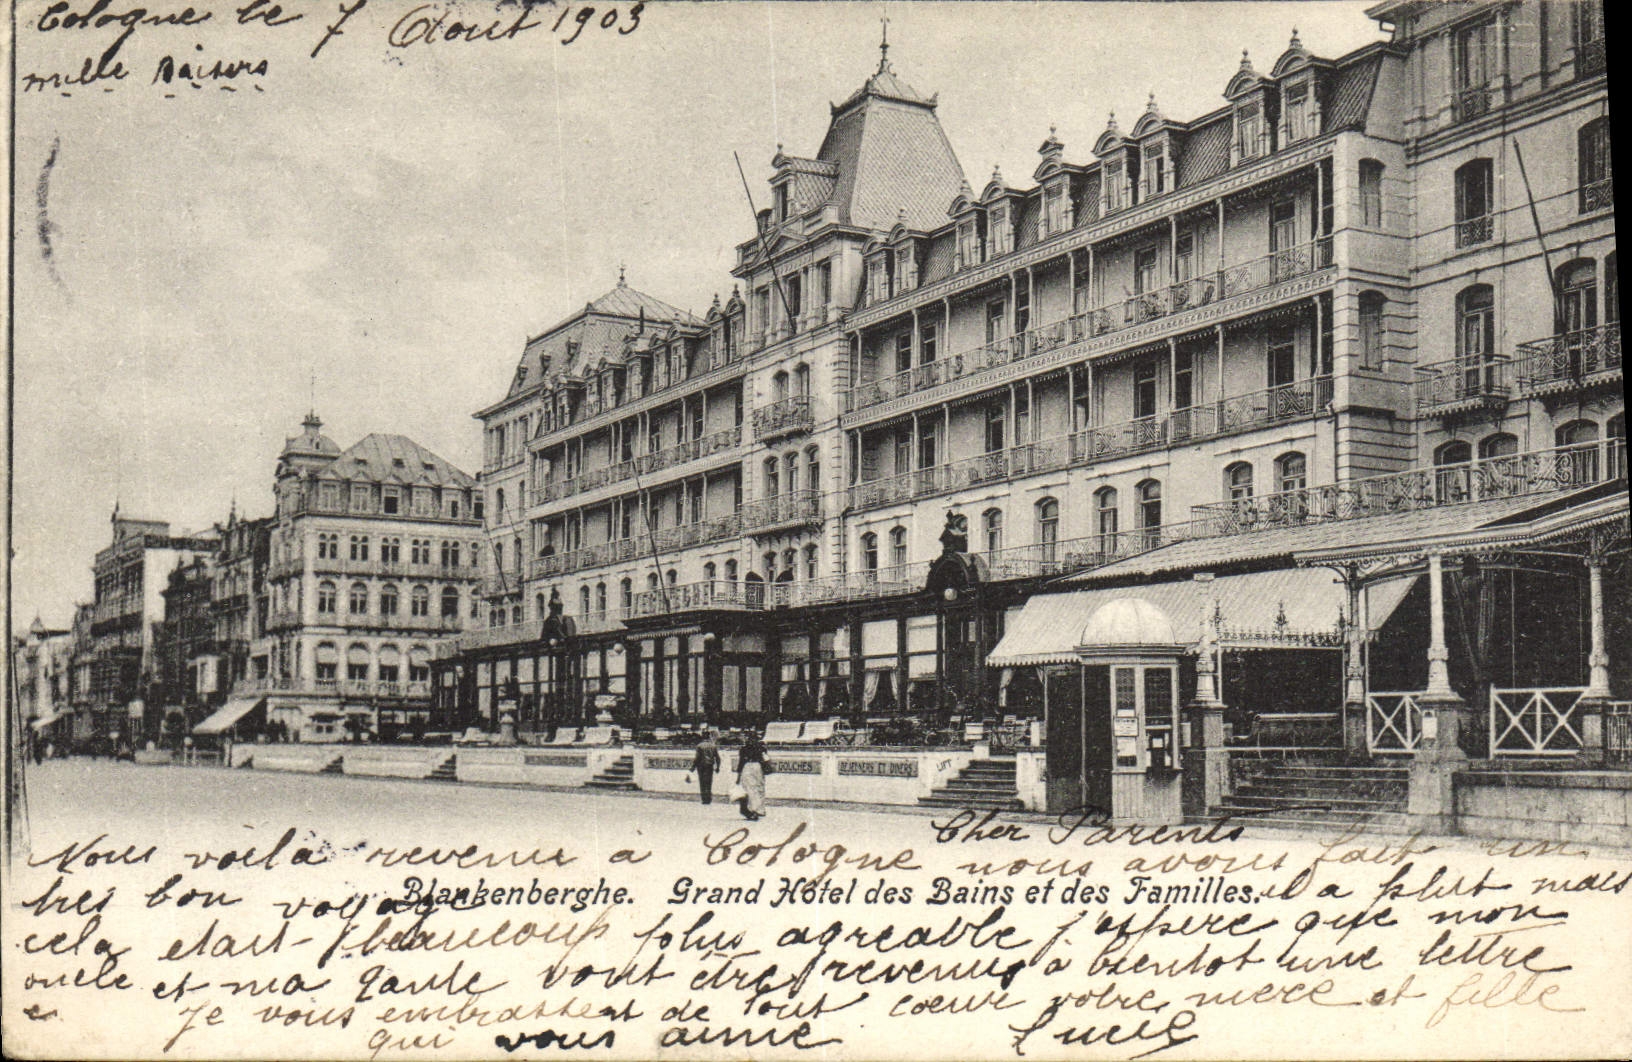 Cologne le 7 Aout 1903
mille Baisers
GOUCHES DEJEUNERS ET DINERS LIFT
Cher Parents
Nous voila revenu à Cologne nous avons fait un
tres bon voyage il a plut mais
Blankenberghe. Grand Hôtel des Bains et des Familles.
cela etait beaucoup plus agreable j'espere que mon
oncle et ma tante vont être revenus a bientot une lettre
Je vous embrassent de tout coeur votre mere et fille
qui vous aime Lucie